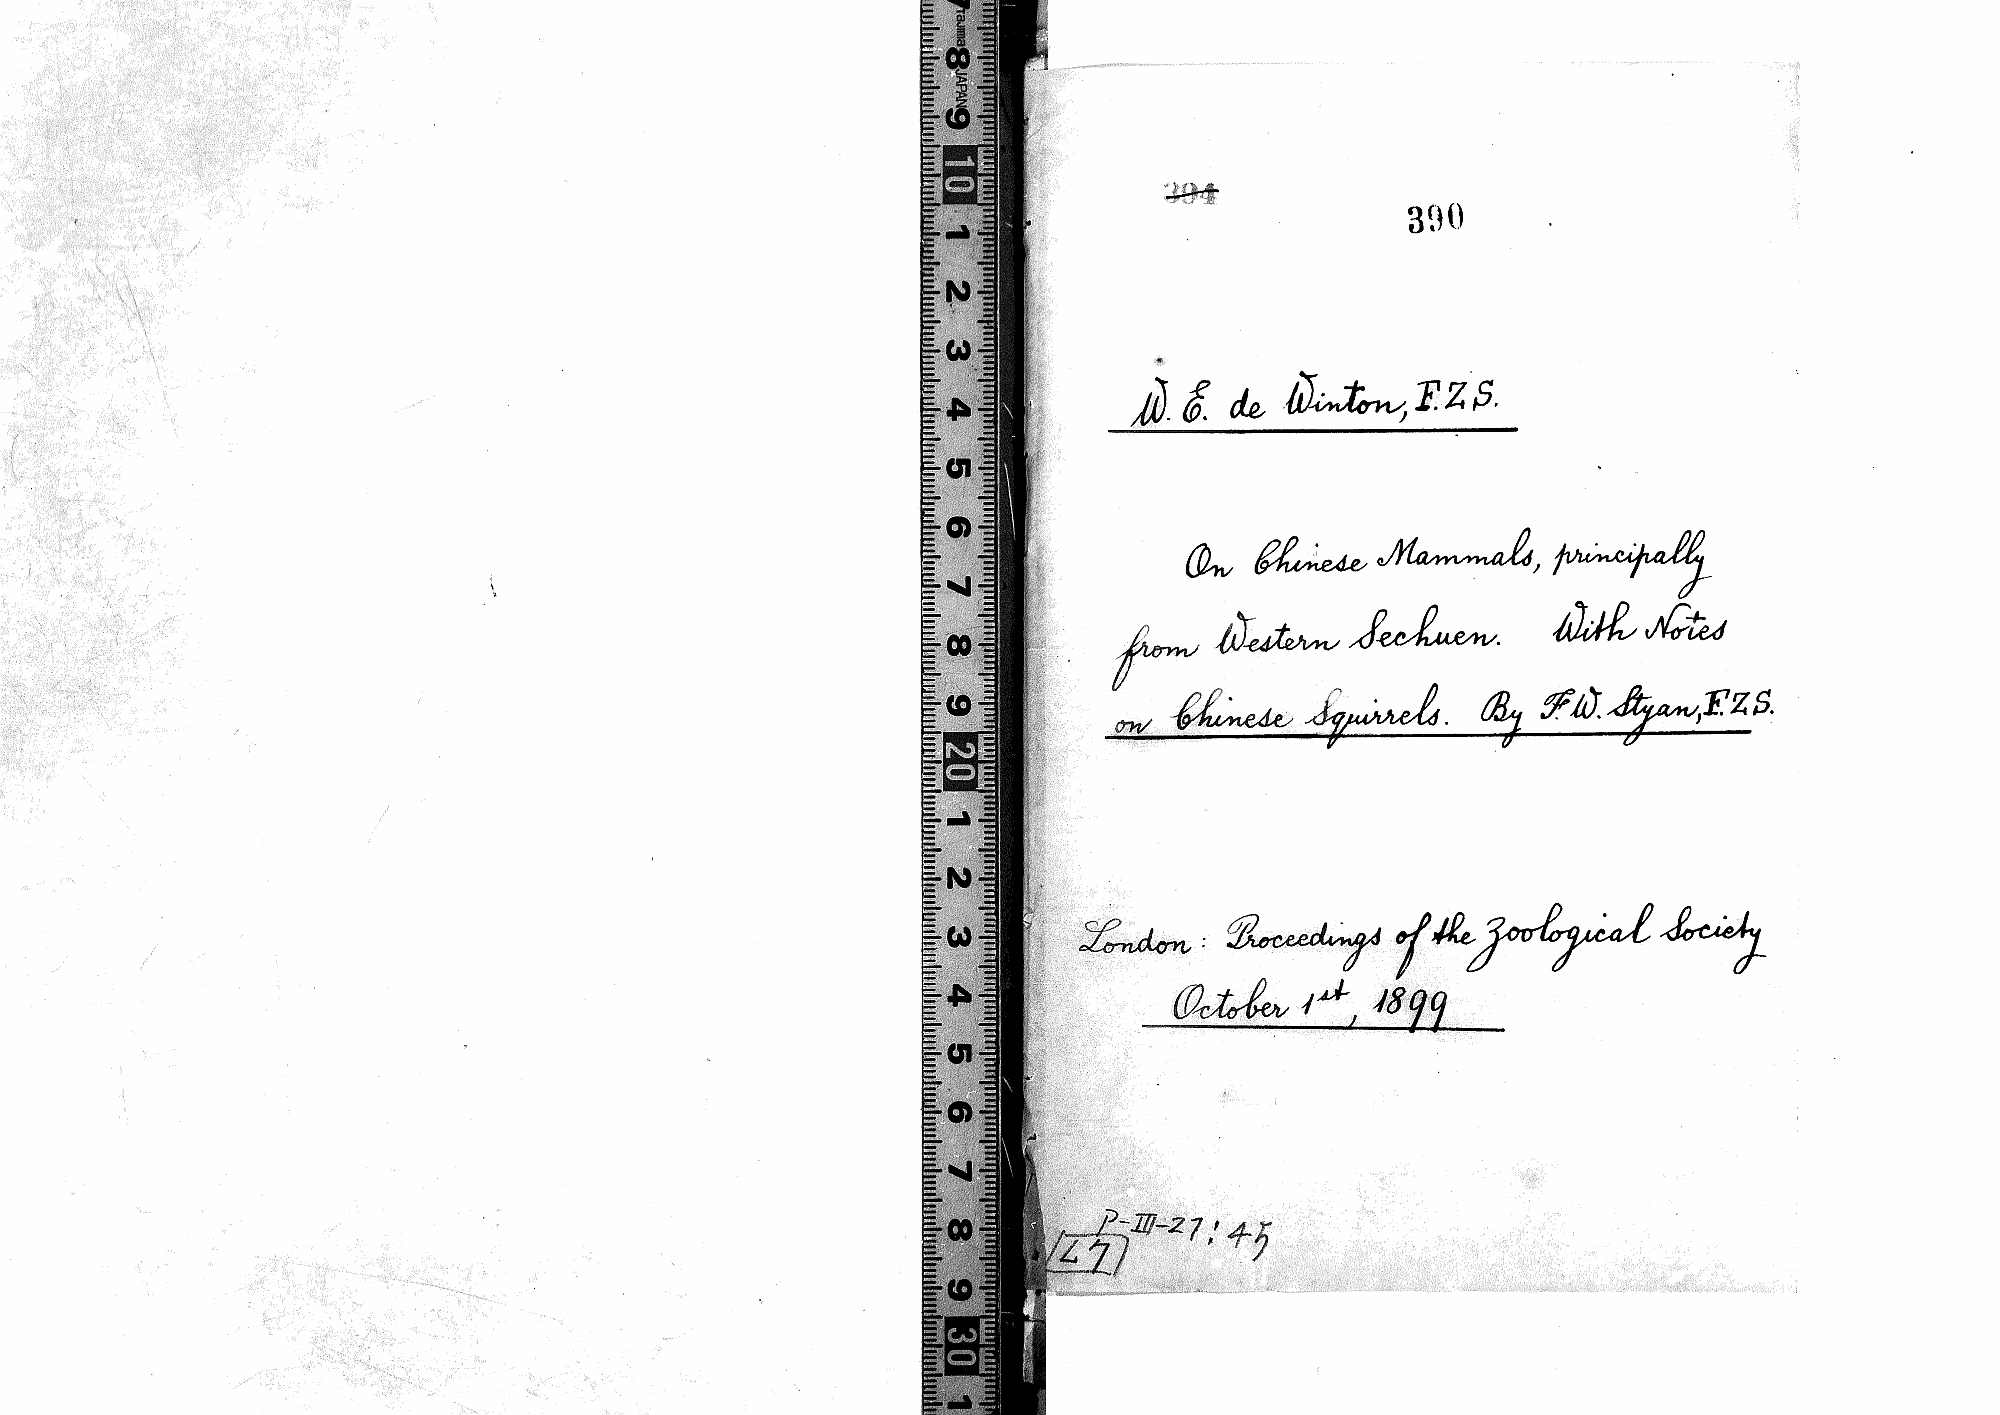 Tajima JAPAN
8
9
10
1
2
3
4
5
6
7
8
9
20
1
2
3
4
5
6
7
8
9
30
1
394
390
W. E. de Winton, F.Z.S.
On Chinese Mammals, principally
from Western Sechuen. With Notes
on Chinese Squirrels. By F. W. Styan, F.Z.S.
London: Proceedings of the Zoological Society
October 1st, 1899
P-III-27: 45